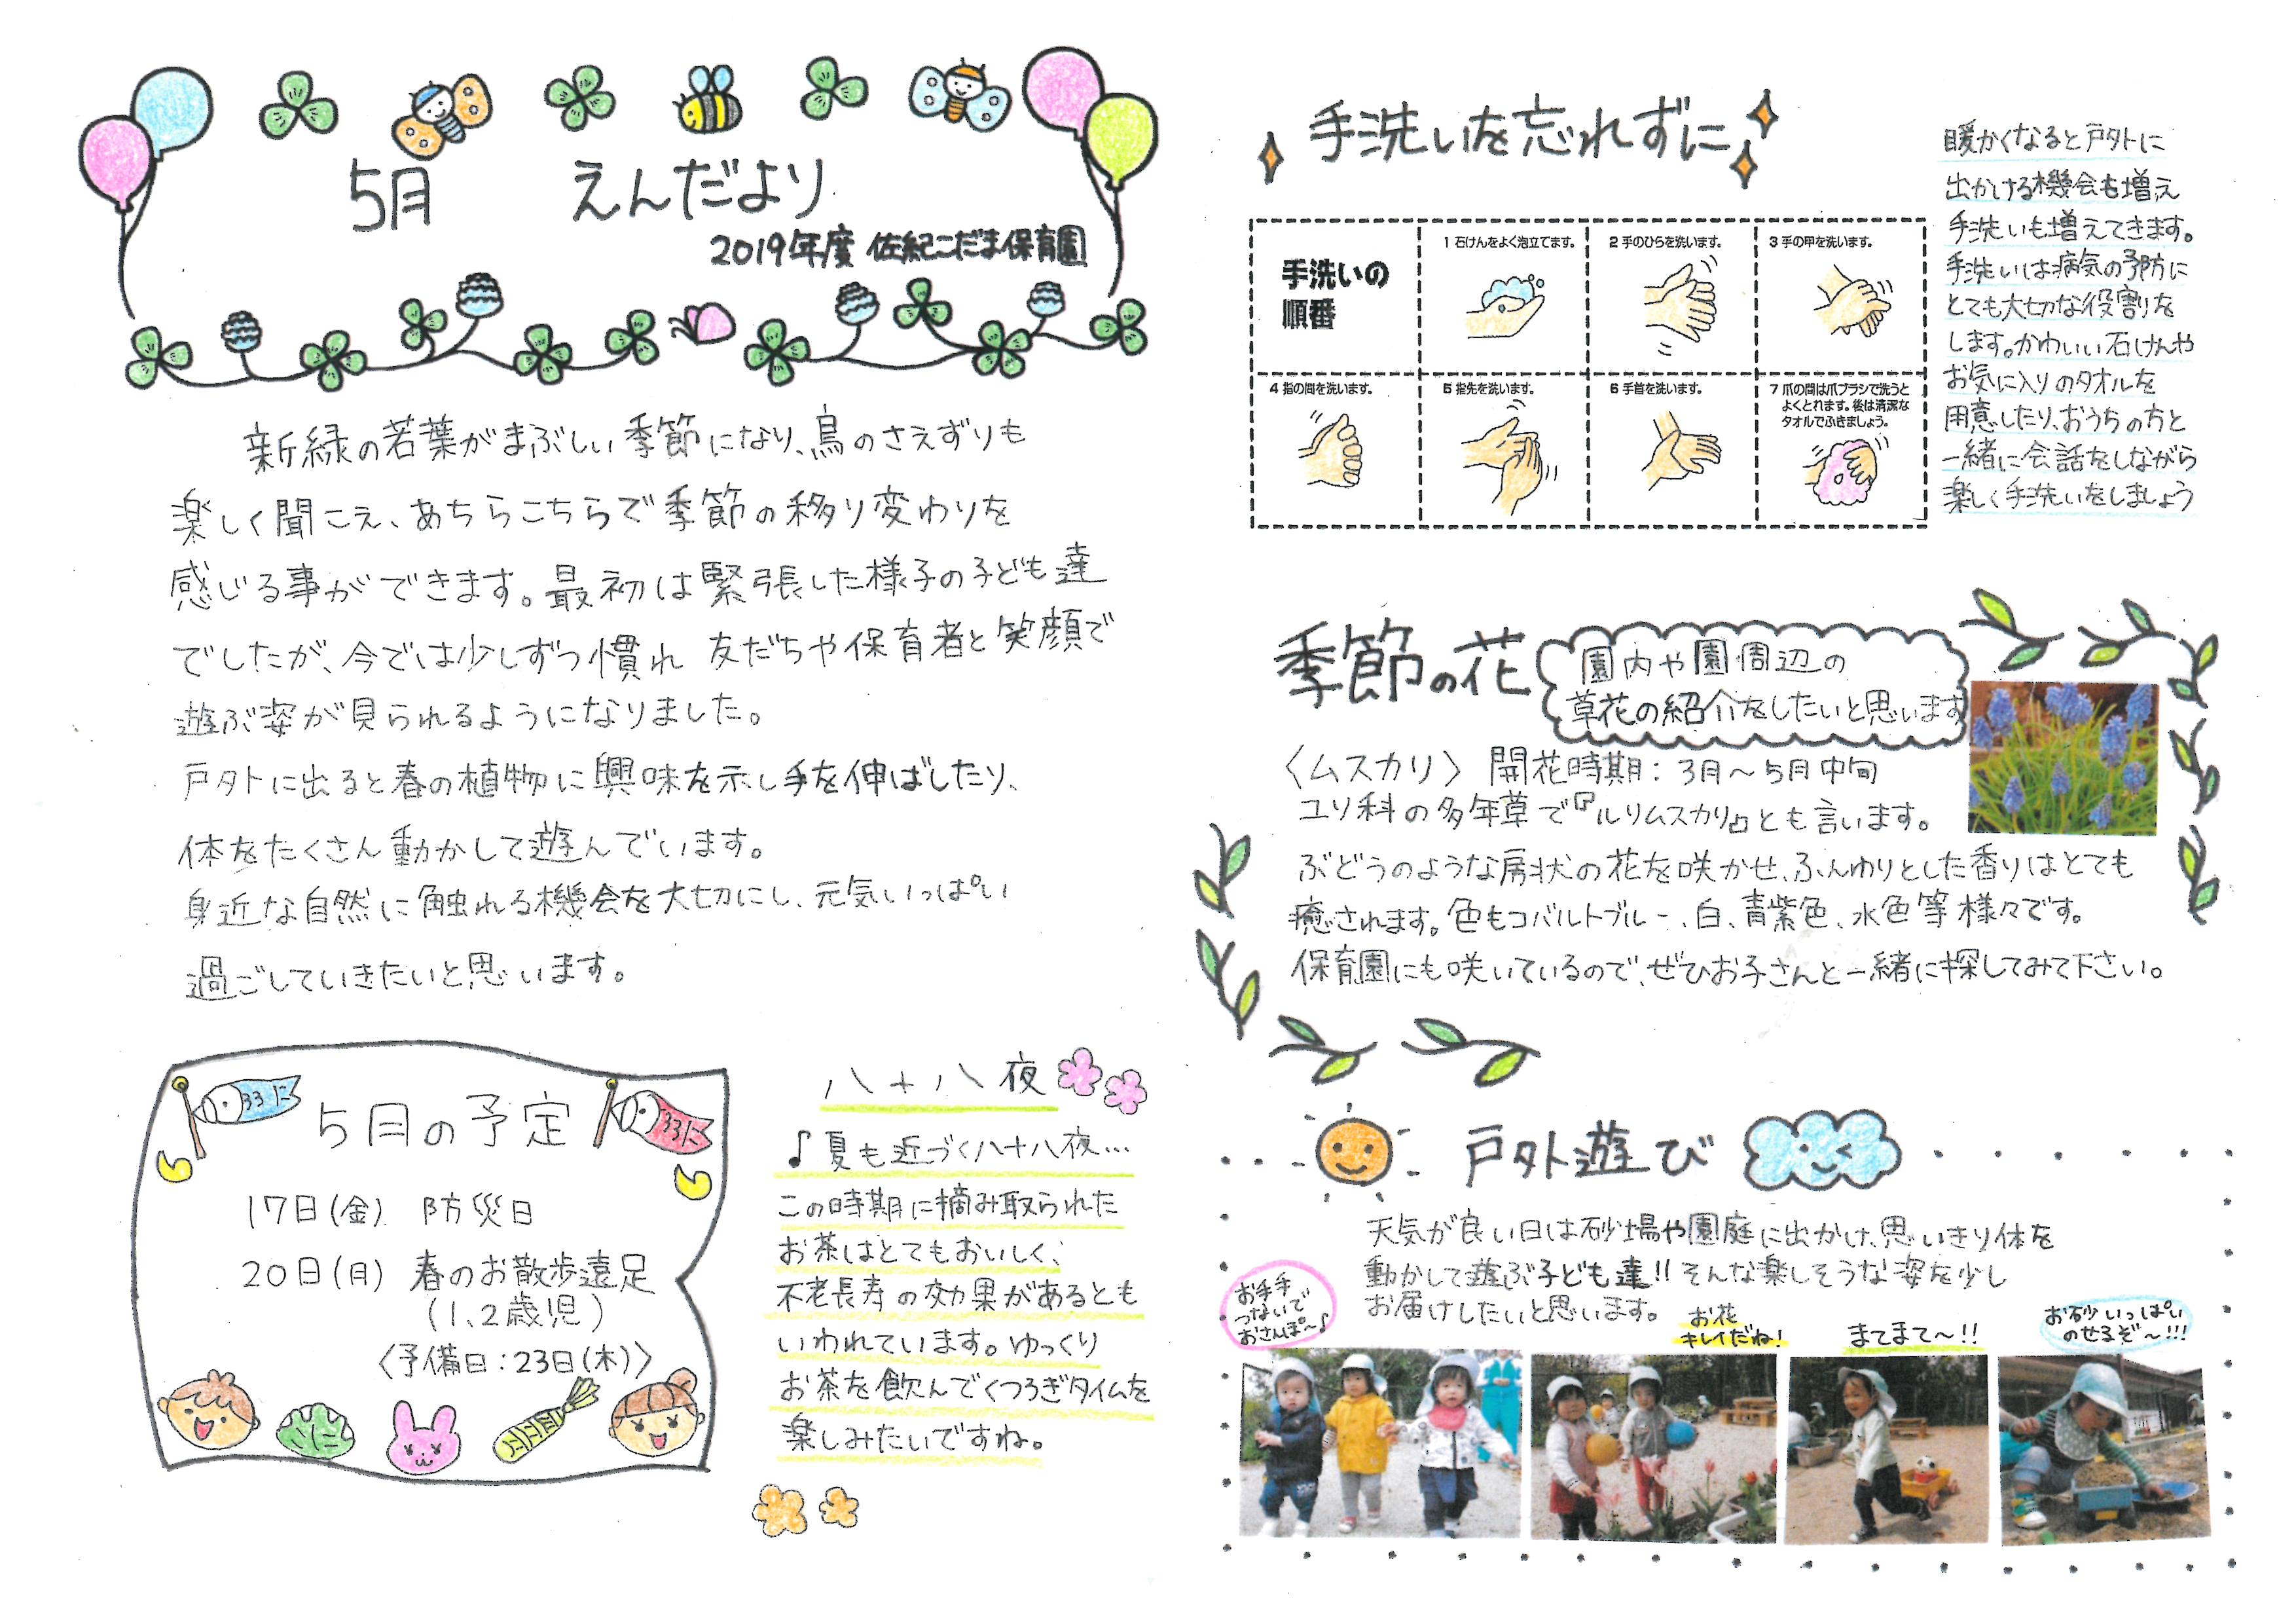 5月 えんだより
2019年度 佐紀こだま保育園
新緑の若葉がまぶしい季節になり、鳥のさえずりも
楽しく聞こえ、あちらこちらで季節の移り変わりを
感じる事ができます。最初は緊張した様子の子ども達
でしたが、今では少しずつ慣れ 友だちや保育者と笑顔で
遊ぶ姿が見られるようになりました。
戸外に出ると春の植物に興味を示し手を伸ばしたり、
体をたくさん動かして遊んでいます。
身近な自然に触れる機会を大切にし、元気いっぱい
過ごしていきたいと思います。
5月の予定
17日(金) 防災日
20日(月) 春のお散歩遠足
(1、2歳児)
〈予備日:23日(木)〉
八十八夜
♪夏も近づく八十八夜…
この時期に摘み取られた
お茶はとてもおいしく、
不老長寿の効果があるとも
いわれています。ゆっくり
お茶を飲んでくつろぎタイムを
楽しみたいですね。
手洗いを忘れずに
手洗いの
順番
1 石けんをよく泡立てます。
2 手のひらを洗います。
3 手の甲を洗います。
4 指の間を洗います。
5 指先を洗います。
6 手首を洗います。
7 爪の間は爪ブラシで洗うと
よくとれます。後は清潔な
タオルでふきましょう。
暖かくなると戸外に
出かける機会も増え
手洗いも増えてきます。
手洗いは病気の予防に
とても大切な役割を
します。かわいい石けんや
お気に入りのタオルを
用意したり、おうちの方と
一緒に会話をしながら
楽しく手洗いをしましょう
季節の花
園内や園周辺の
草花の紹介をしたいと思います
〈ムスカリ〉 開花時期:3月〜5月中旬
ユリ科の多年草で『ルリムスカリ』とも言います。
ぶどうのような房状の花を咲かせ、ふんゆりとした香りはとても
癒されます。色もコバルトブルー、白、青紫色、水色等様々です。
保育園にも咲いているので、ぜひお子さんと一緒に探してみて下さい。
戸外遊び
天気が良い日は砂場や園庭に出かけ、思いきり体を
動かして遊ぶ子ども達!!そんな楽しそうな姿を少し
お届けしたいと思います。
お手手
つないで
おさんぽ〜♪
お花
キレイだね!
まてまて〜!!
お砂いっぱい
のせるぞ〜!!!